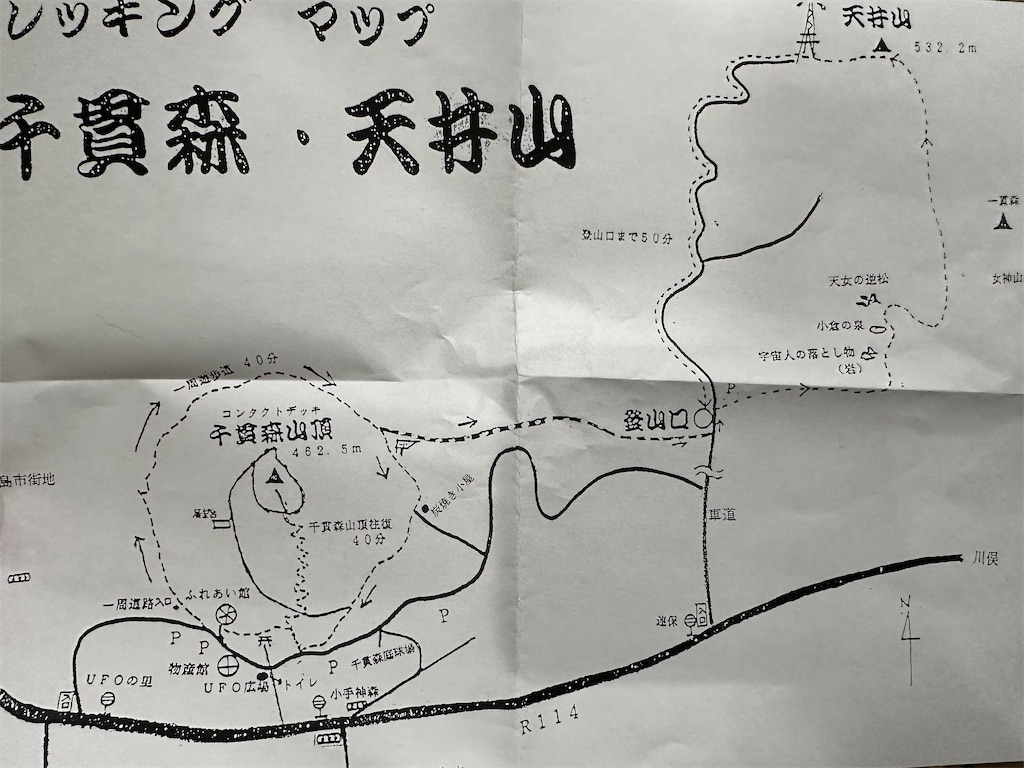 レッキング マップ
千貫森・天井山
天井山
532.2m
登山口まで50分
一貫森
女神山
天女の逆松
小倉の泉
宇宙人の落とし物
(岩)
一周遊歩道 40分
コンタクトデッキ
千貫森山頂
462.5m
登山口
P
島市街地
炭焼き小屋
千貫森山頂往復
40分
車道
川俣
一周道路入口
ふれあい館
P
P
P
P
物産館
千貫森庭球場
UFOの里
入口
UFO広場
トイレ
小手神森
入口
N
R114